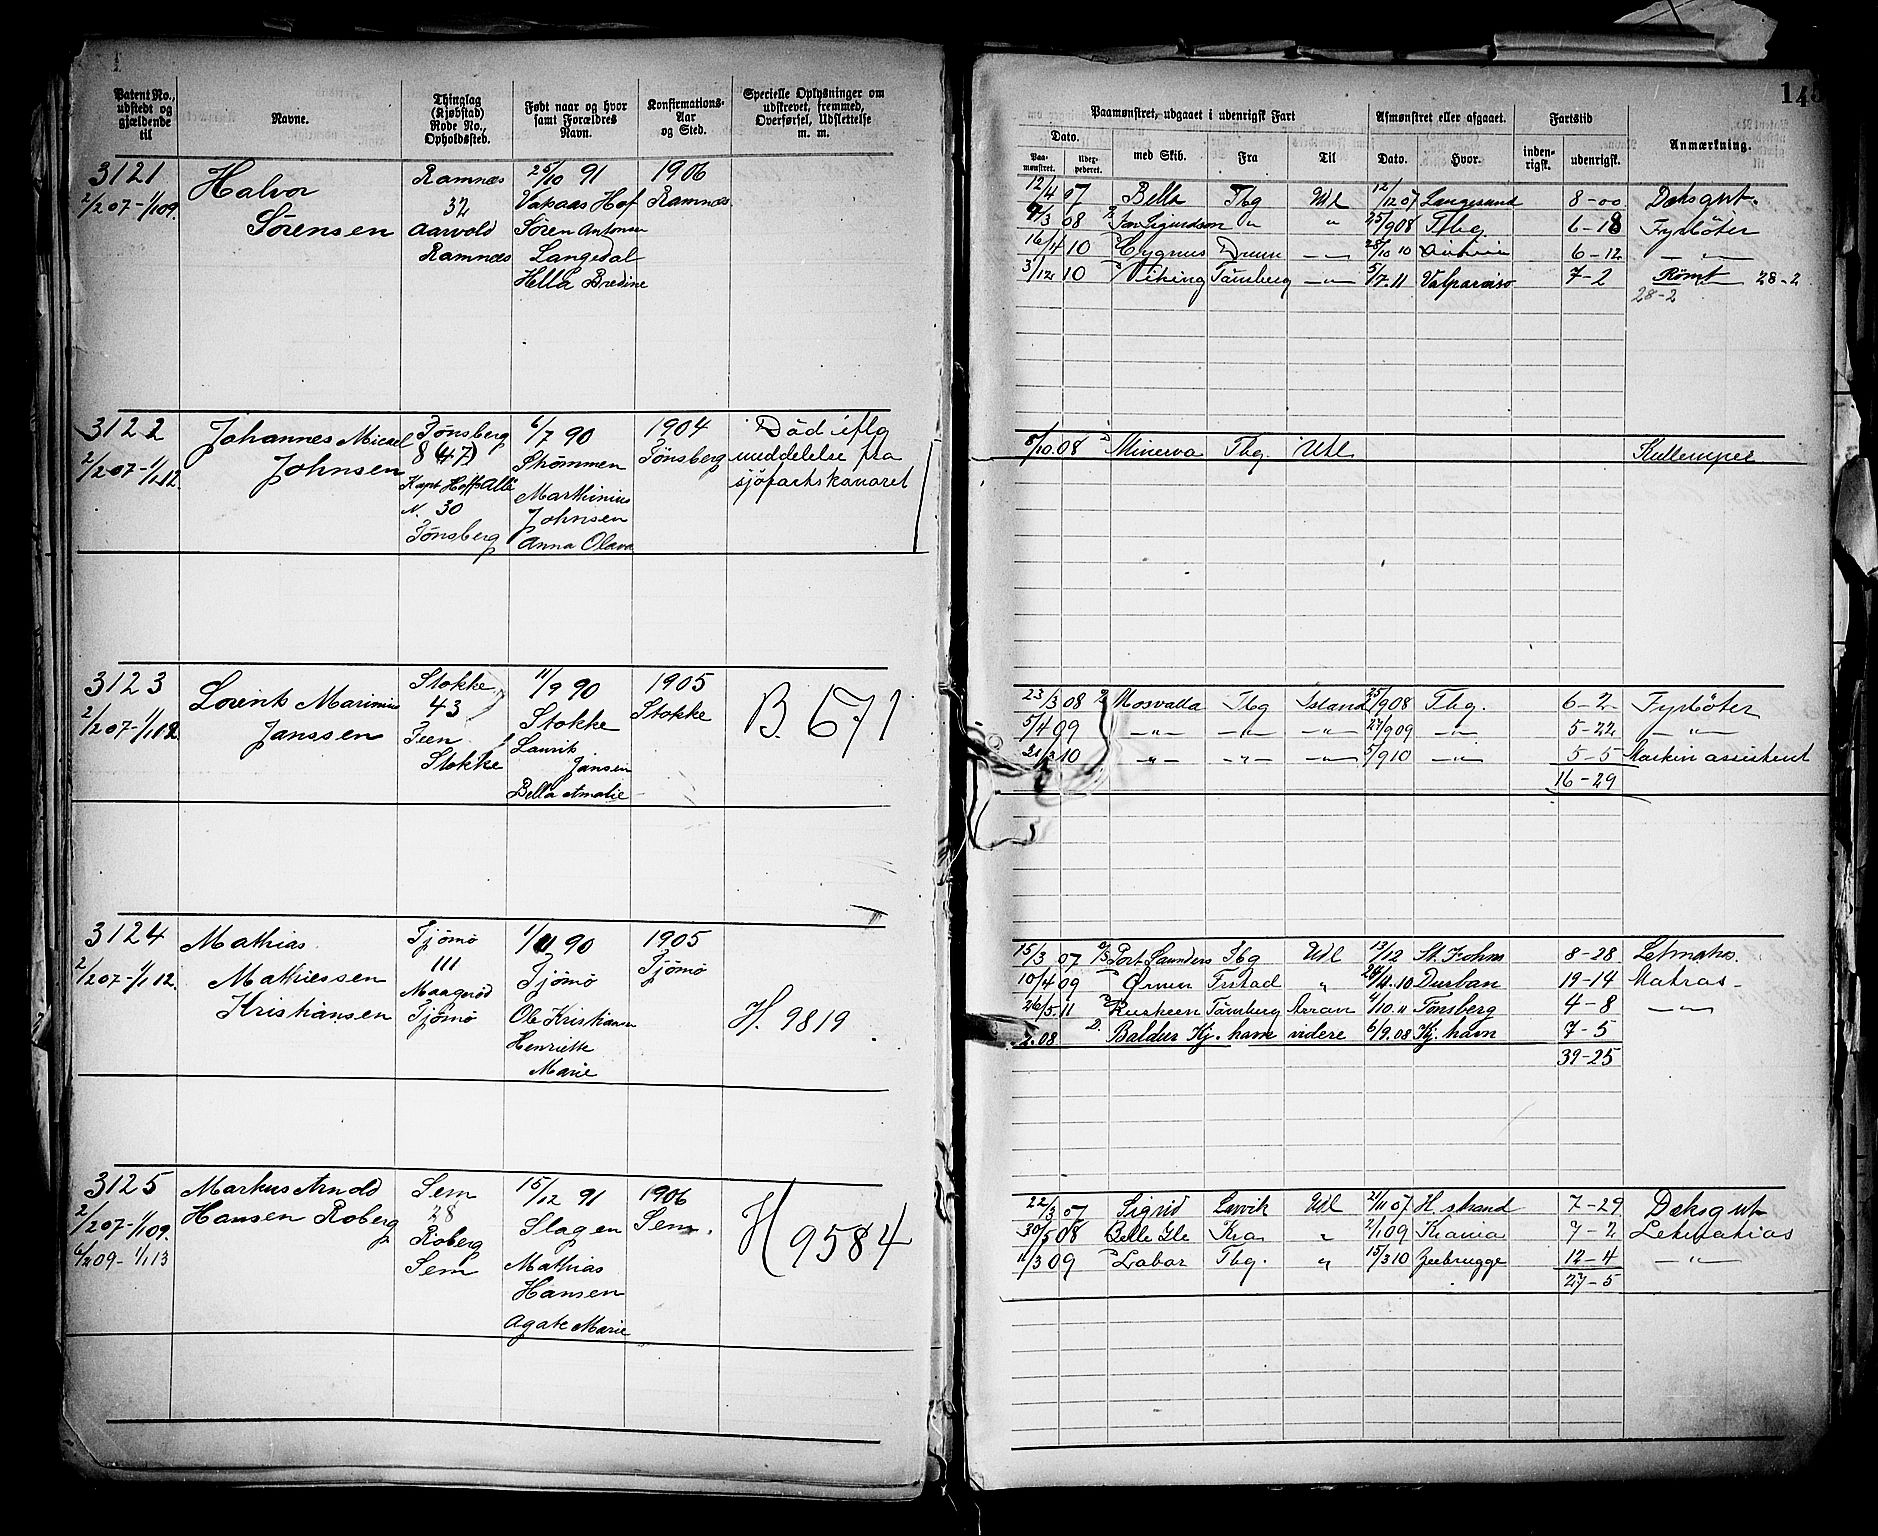 148
Patent No., udstedt og gjældende til
Navne.
Thinglag (Kjøbstad) Rode No., Opholdssted.
Født naar og hvor samt Forældres Navn.
Konfirmations- Aar og Sted.
Specielle Oplysninger om udskrevet, fremmed, Overførsel, Udslettelse m. m.
Paamønstret, udgaaet i udenrigsk Fart
Afmønstret eller afgaaet.
Fartstid
Anmærkning.
Dato.
med Skib.
Fra
Til
Dato.
Hvor.
inden- rigsk.
udenrigsk.
Paa- mønstret.
3121
2/2 07-1/1 09.
Halvor
Sørensen
Ramnæs
32
Aarvold
Ramnæs
25/10 91
Vakaas Hof
Sören Antonsen
Langedal
Hella Bredine
1906
Ramnæs.
12/4 07 Bella Tbg Udl 12/12 07 Langesund 8-00 Dæksgut.
7/3 08 Jon Sigurdson " " 25/9 08 Tbg. 6-18 Fyrböter
16/4 10 Cygnus Drmn -"- 28/10 10 6-12 -"-
3/12 10 Viking Tönsberg -"- 5/7 11 Valparaiso 7-2 Rømt 28-2
28-2
3122
2/2 07-1/1 12.
Johannes Micael
Johnsen
Tønsberg
8 (47)
Kapt Hoffs Allé
N. 30
Tønsberg
6/7 90
Strömmen
Marthinius
Johnsen
Anna Olava
1904
Tønsberg
Död iflg
meddelelse fra
sjöfartskontoret
8/10 08 Minerva Tbg. Utl Kullemper
3123
2/2 07-1/1 12.
Lorents Marinius
Janssen
Stokke
43
Feen
Stokke
11/9 90
Stokke
Laurits
Jansen
Bella Amalie
1905
Stokke
B. 671
23/3 08 Mosvalla Tbg Island 25/9 08 Tbg. 6-2 Fyrböter
5/4 09 -"- -"- -"- 27/9 09 -"- 5-22 -"-
31/3 10 -"- -"- -"- 5/9 10 -"- 5-5 Maskinassistent
16-29
3124
2/2 07-1/1 12.
Mathias
Mathiessen
Kristiansen
Tjömö
111
Maagerød
Tjömö
1/11 90
Tjömö
Ole Kristiansen
Henriette
Marie
1905
Tjömö
H. 9819
15/3 07 Port Saunders Tbg Udl 13/12 St. Johns 8-28 Letmatros.
10/4 09 Ornen Frstad " 24/11 10 Durban 19-14 Matros
26/5 11 Ruskeen Tönsberg Arran 4/10 " Tønsberg 4-8 -"-
2.08 Baldur Kj. havn videre 6/9.08 Kj. havn 7-5
39-25
3125
2/2 07-1/1 09.
6/2 09-1/1 13
Markus Arnold
Hansen Roberg
Sem
28
Roberg
Sem
15/12 91
Slagen
Mathias
Hansen
Agate Marie
1906
Sem.
H 9584
22/3 07 Sigrid Larvik Udl 21/11 07 H strand 7-29 Dæksgut
30/5 08 Belle Ile Kra " 2/1 09 Krania 7-2 Letmatros
11/3 09 Labor Tbg. " 15/3 10 Zeebrugge 12-4 -"-
27-5